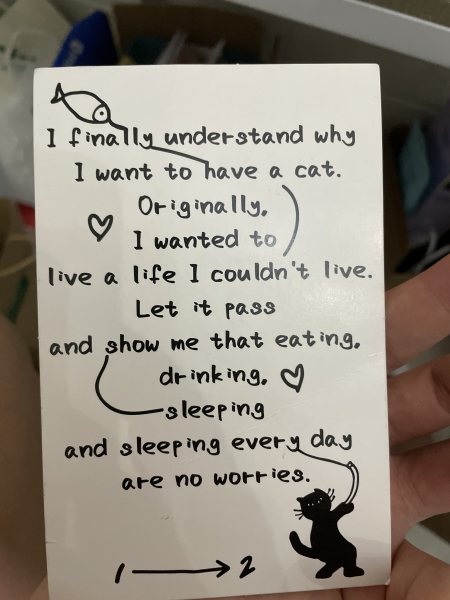 I finally understand why
I want to have a cat.
Originally,
I wanted to
live a life I couldn't live.
Let it pass
and show me that eating,
drinking,
sleeping
and sleeping every day
are no worries.
1 → 2